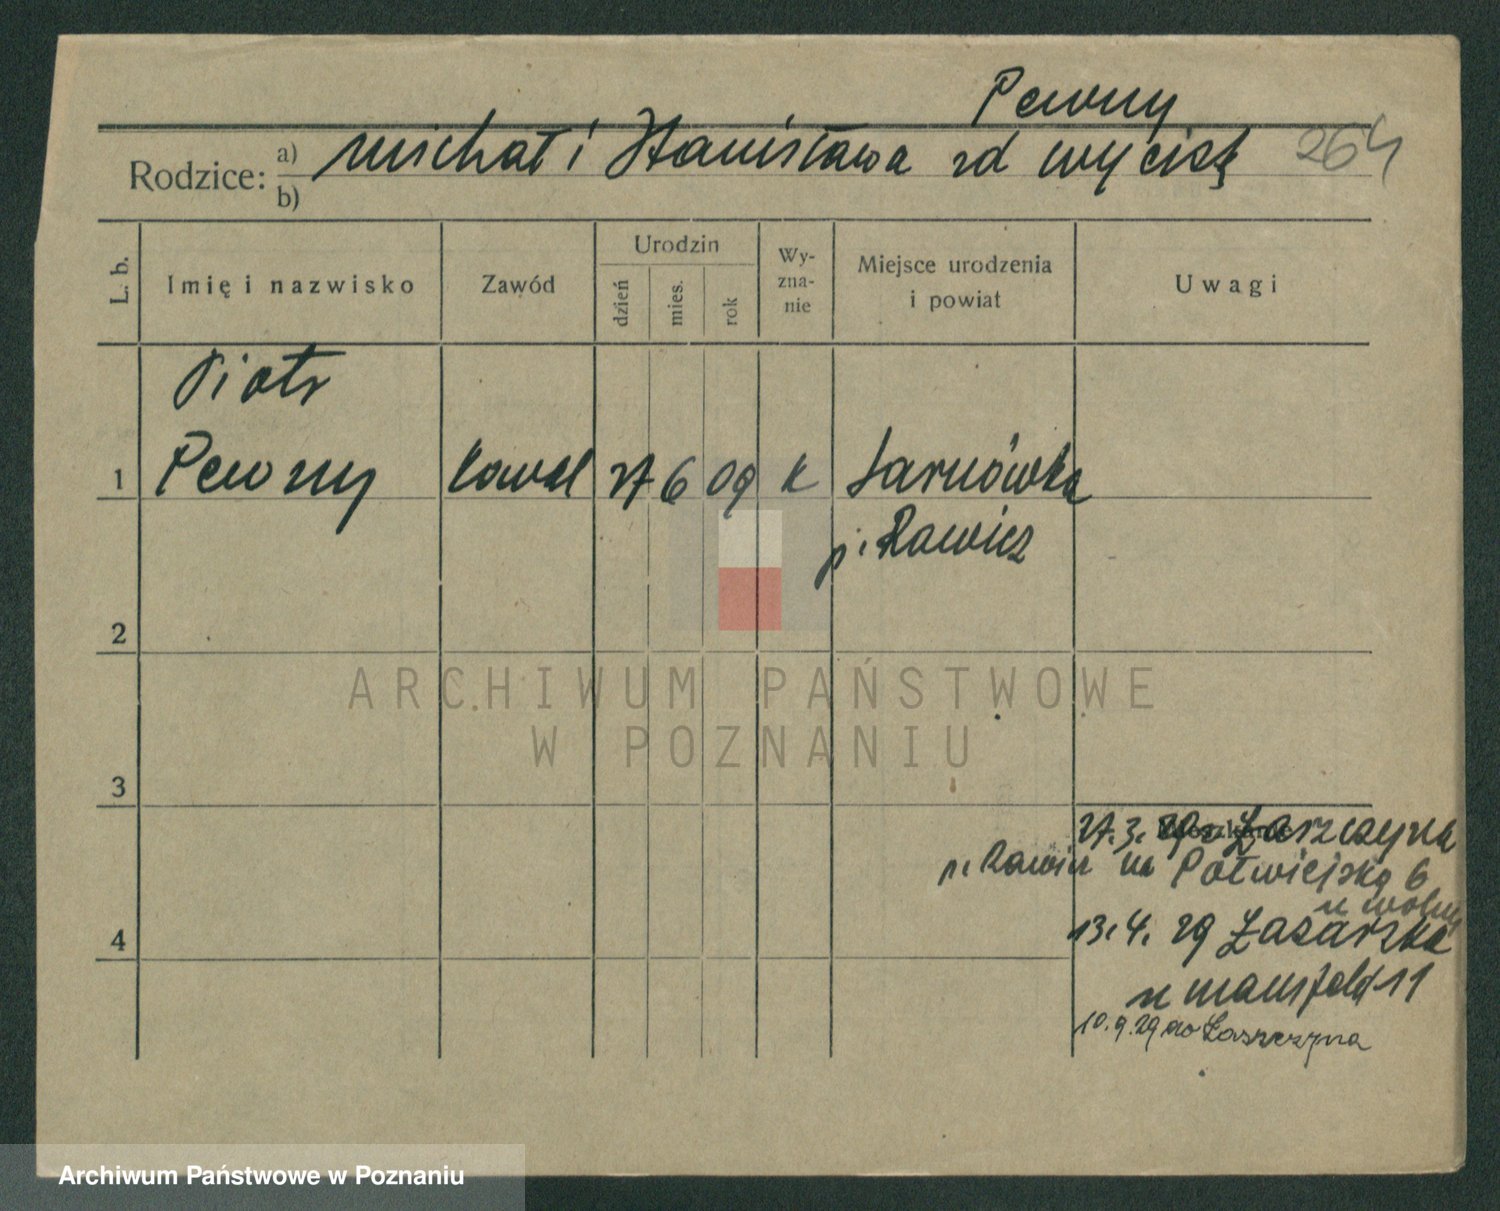 Pewny
264
Rodzice: a) Michał i Stanisława zd Wycisk
b)
L. b.
Imię i nazwisko
Zawód
Urodzin
dzień
mies.
rok
Wy-
zna-
nie
Miejsce urodzenia
i powiat
Uwagi
Piotr
1 Pewny Kowal 27 6 09 k Sarnówka
p. Rawicz
2
ARCHIWUM PAŃSTWOWE
W POZNANIU
3
27.3. 29 z Łaszczyna
p. Rawicz na Półwiejską 6
u
4
13.4. 29 Łazarska
u Mansfeld 11
10.9.29 do Łaszczyna
Archiwum Państwowe w Poznaniu